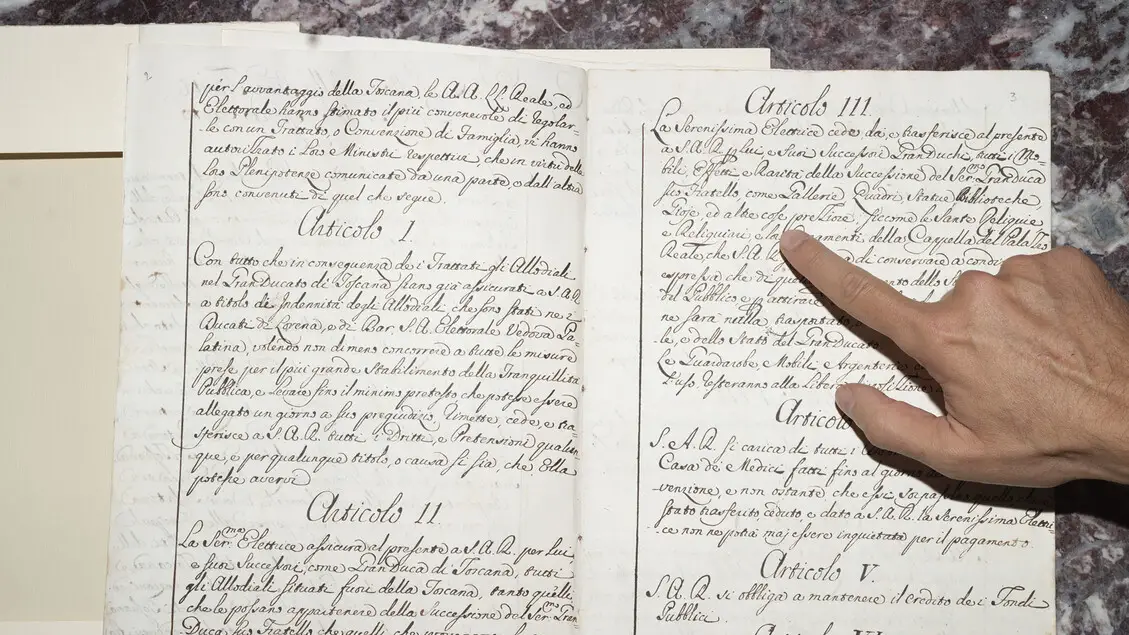 2
per l'avvantaggio della Toscana le A.A. LL. Reale, ed
Elettorale hanno stimato il più convenevole di regolar-
le con un Trattato o Convenzione di Famiglia, vi hanno
autorizzato i loro Ministri respettivi, che in virtù delle
loro Plenipotenze comunicate da una parte, e dall'altra
sono convenuti di quel che segue.
Articolo I.
Con tutto che in conseguenza de i Trattati gli Allodiali
nel GranDucato di Toscana siano già assicurati a S.A.R.
a titolo di Indennità degli Allodiali, che sono stati ne i
Ducati di Lorena, e di Bar, S.A. Elettorale Vedova Pa-
latina, volendo non dimeno concorrere a tutte le misure
prese per il più grande Stabilimento della Tranquillità
Pubblica, e levare fino il minimo pretesto che potesse essere
allegato un giorno a suo pregiudizio, rimette, cede, e tra-
sferisce a S.A.R. tutti i Dritti, e Pretensioni qualun-
que, e per qualunque titolo, o causa si sia, che Ella
potesse avervi
Articolo II.
La Ser.ma Elettrice assicura al presente a S.A.R. per lui
e suoi Successori, come GranDuca di Toscana, tutti
gli Allodiali situati fuori della Toscana, tanto quelli
che le possano appartenere della Successione del Ser.mo Gran
Duca suo Fratello che quelli che
3
Articolo III.
La Serenissima Elettrice cede, da, e trasferisce al presente
a S.A.R. p lui e Suoi Successori GranDuchi, tutti i Mo-
bili, Effetti e Rarità della Successione del Ser.mo GranDuca
suo Fratello, come Gallerie Quadri Statue Biblioteche
Gioje, ed altre cose preziose, siccome le Sante Reliquie
e Reliquiari, e loro Ornamenti della Cappella del Palazzo
Reale, che S.A.R. di conservare a condi
espressa che di quel mento dello
del Pubblico e p attirare
ne sarà nulla trasportato
le, e dello Stato del GranDucato
Le Guardarobe, Mobili e Argenterie
l'uso resteranno alla Libera
Articolo
S. A. R. si carica di tutti i
Casa de Medici fatti fino al giorno
venzione, e non ostante che essi
stato trasferito, ceduto e dato a S.A.R. la Serenissima Elettri-
ce non ne potrà mai essere inquietata per il pagamento.
Articolo V.
S.A.R. si obbliga a mantenere il credito de i Fondi
Pubblici.